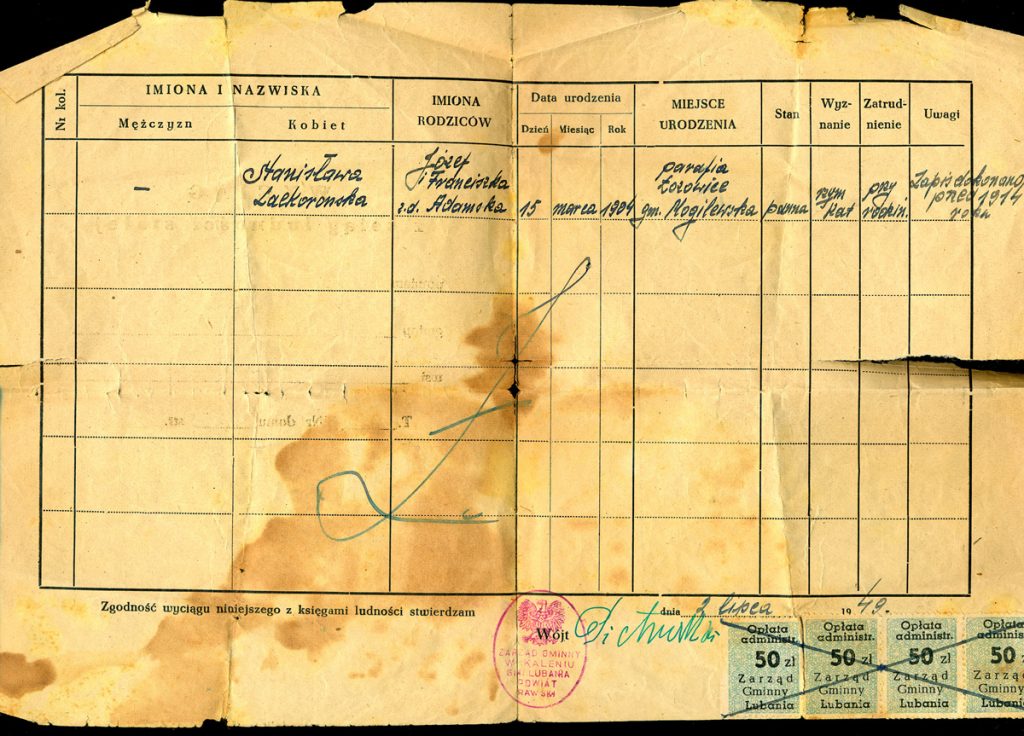 Nr kol.
IMIONA I NAZWISKA
Mężczyzn
Kobiet
IMIONA
RODZICÓW
Data urodzenia
Dzień
Miesiąc
Rok
MIEJSCE
URODZENIA
Stan
Wyz-
nanie
Zatrud-
nienie
Uwagi
–
Stanisława
Lackorońska
Józef
i Franciszka
z.d. Adamska
15
marca
1904
parafia
gm.
panna
rzym
kat
przy
rodzin.
Zapis dokonano
przed 1914
roku
Nr domu
Zgodność wyciągu niniejszego z księgami ludności stwierdzam
dnia 2 lipca 1949.
Wójt
ZARZĄD GMINNY
W KALENIU
GM. LUBANIA
POWIAT
RAWSKI
Opłata
administr.
50 zł
Zarząd
Gminny
Lubania
Opłata
administr.
50 zł
Zarząd
Gminny
Lubania
Opłata
administr.
50 zł
Zarząd
Gminny
Lubania
Opłata
administr.
50 zł
Zarząd
Gminny
Lubania